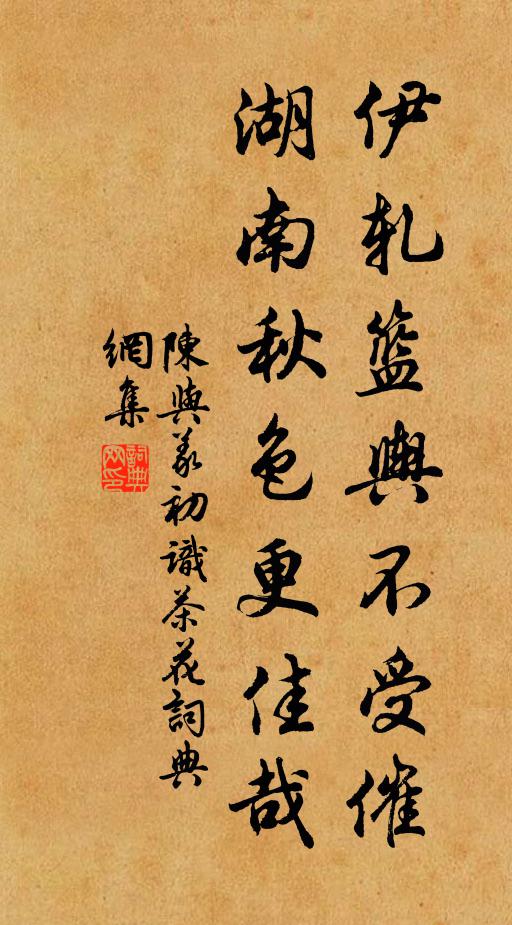 伊軋籃輿不受催
湖南秋色更佳哉
陳與義初識茶花詞典
網集
詞典
网印